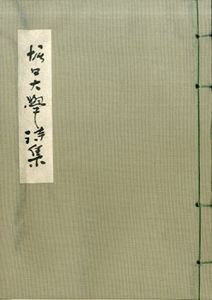 堀口大學詩集